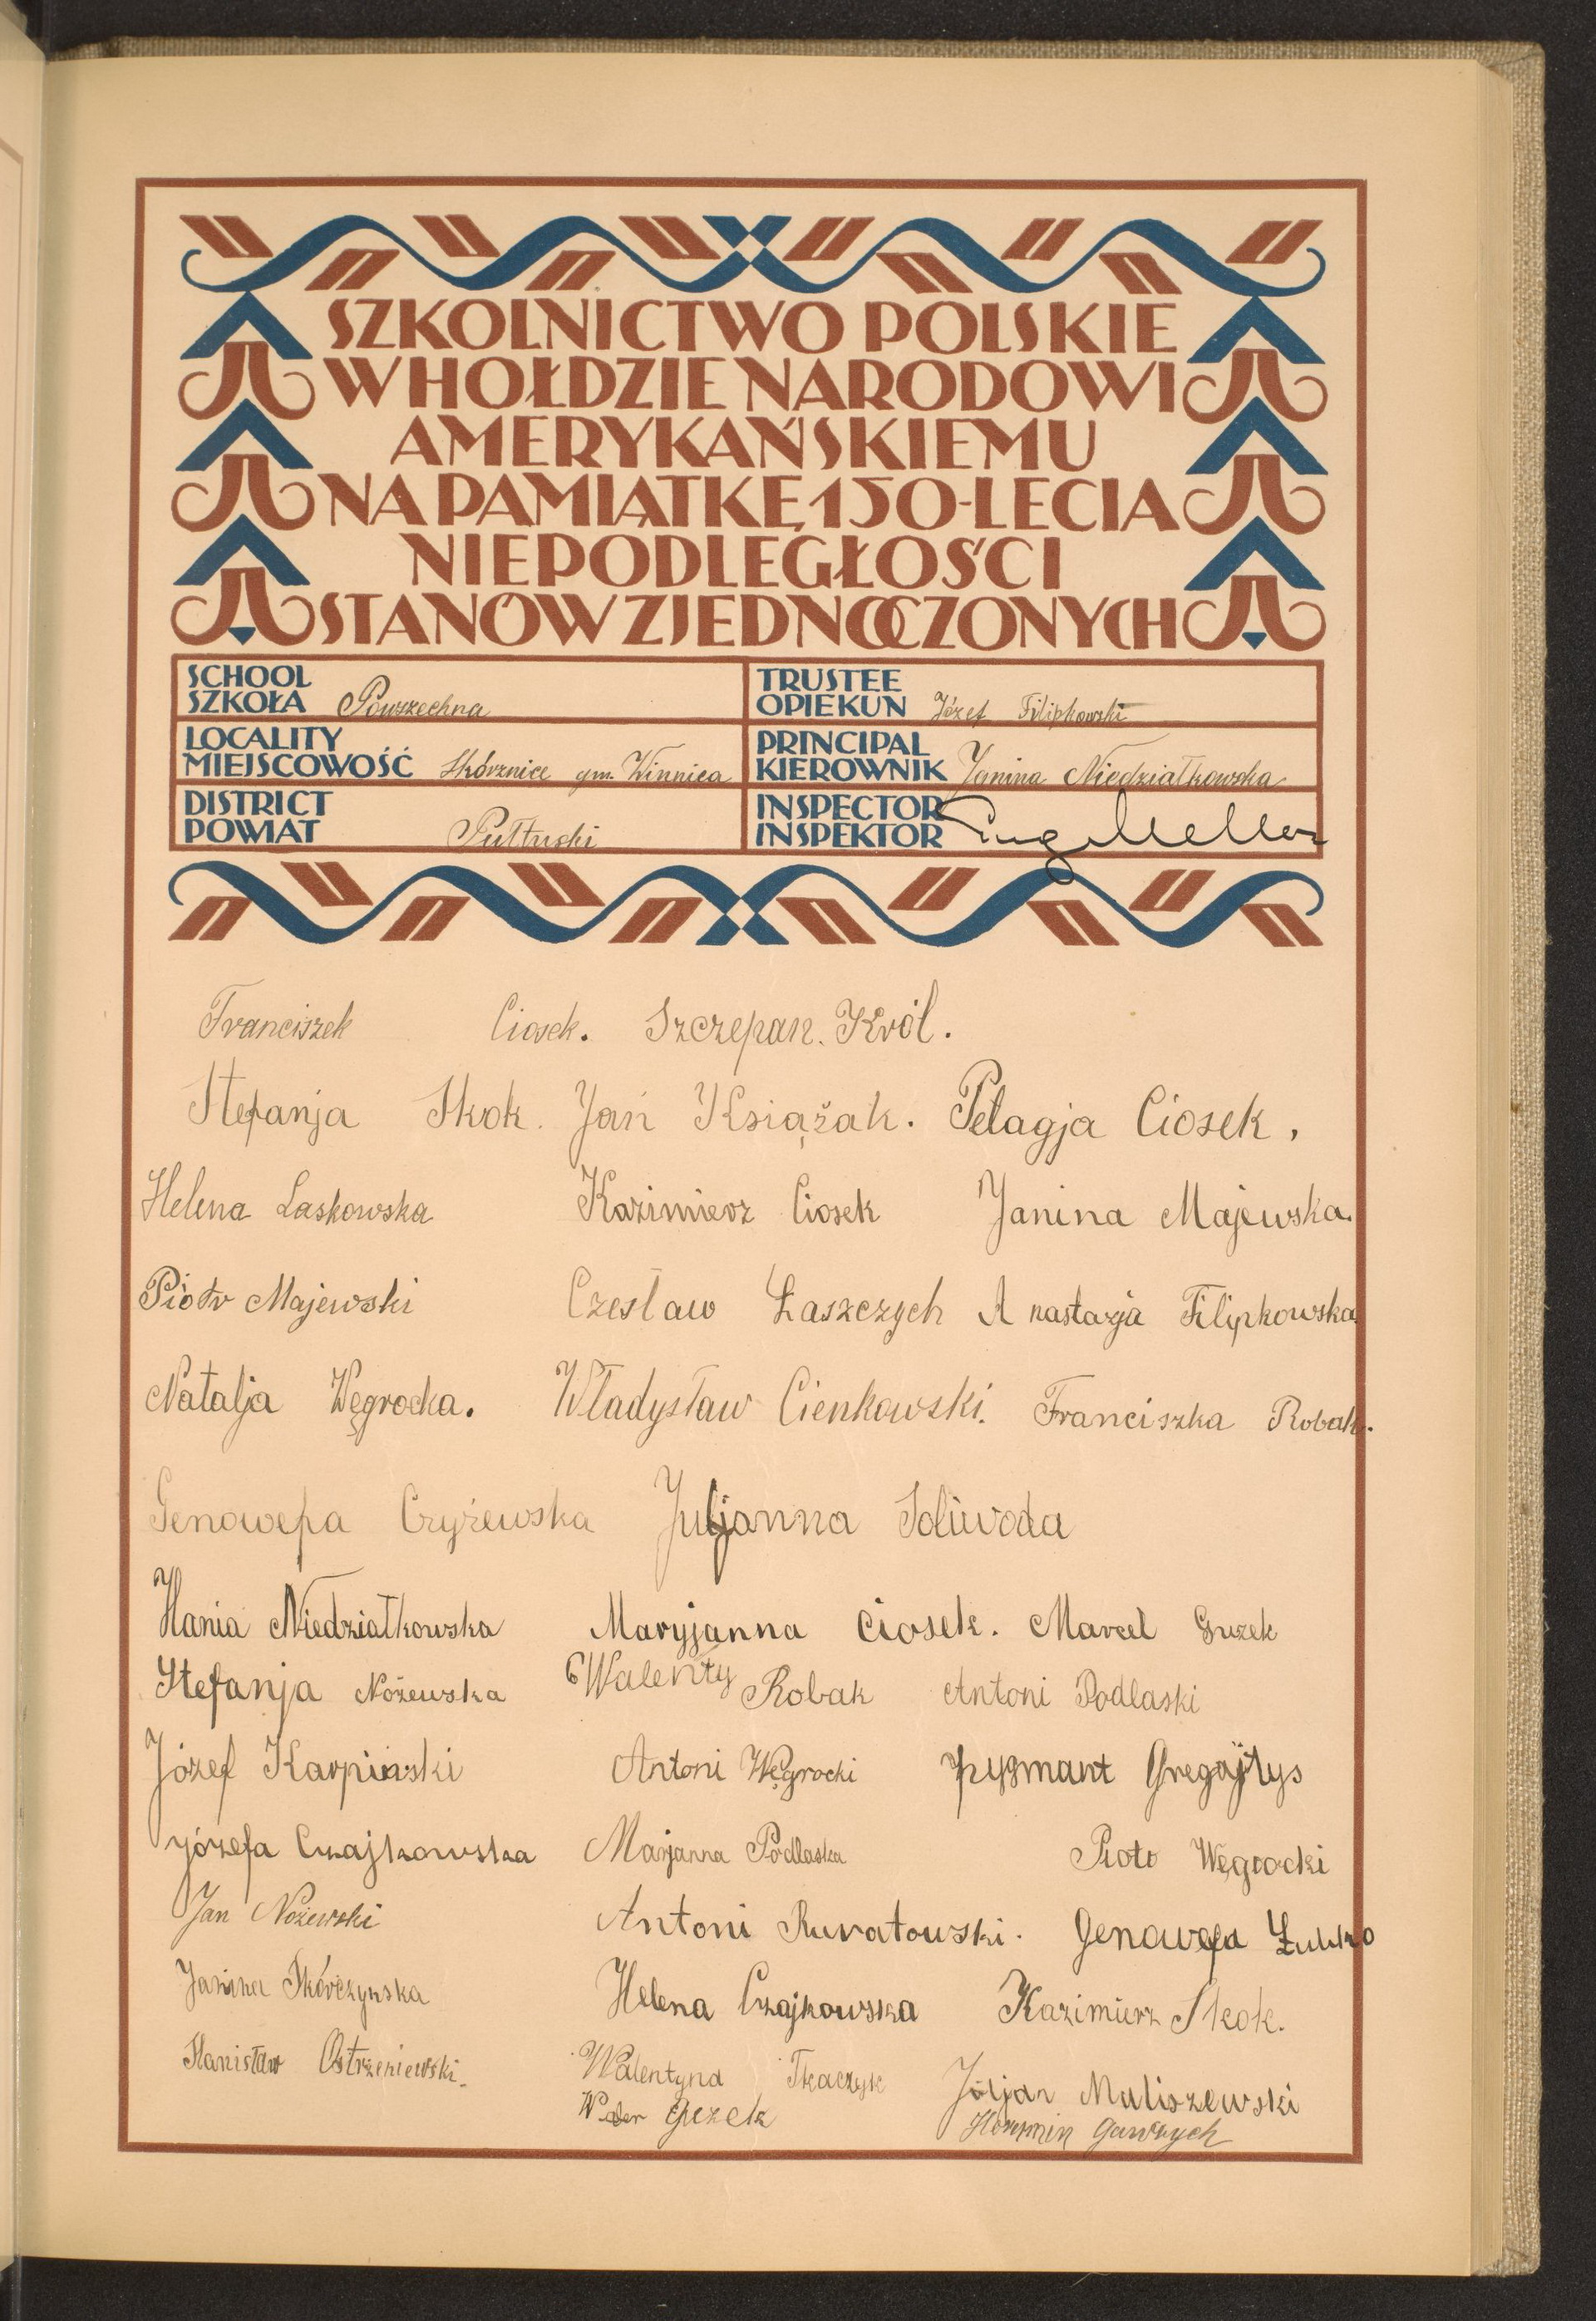 SZKOLNICTWO POLSKIE
W HOŁDZIE NARODOWI
AMERYKAŃSKIEMU
NA PAMIĄTKĘ 150-LECIA
NIEPODLEGŁOŚCI
STANÓW ZJEDNOCZONYCH
SCHOOL
SZKOŁA Powszechna
TRUSTEE
OPIEKUN Józef Filipkowski
LOCALITY
MIEJSCOWOŚĆ Skórznice gm. Winnica
PRINCIPAL
KIEROWNIK Janina Niedziałkowska
DISTRICT
POWIAT Pułtuski
INSPECTOR
INSPEKTOR
Franciszek Ciosek. Szczepan. Król.
Stefanja Skok. Jań Książak. Pelagja Ciosek.
Helena Laskowska Kazimierz Ciosek Janina Majewska.
Piotr Majewski Czesław Łaszczych Anastazja Filipkowska
Natalja Węgrocka. Władysław Cienkowski. Franciszka Robak.
Genowefa Czyżewska Juljanna Soliwoda
Hania Niedziałkowska Maryjanna Ciosek. Marcel Guzek
Stefanja Nożewska Walenty Robak Antoni Podlaski
Józef Karpiński Antoni Węgrocki Zygmant Gregajtys
Józefa Czajkowska Marjanna Podlaska Piotr Węgrocki
Jan Nożewski Antoni Kuratowski. Genowefa
Janina Skórczyńska Helena Czajkowska Kazimierz Skok.
Stanisław Ostrzeniewski. Walentyna Tkaczyk Juljan Maliszewski
Gawrych